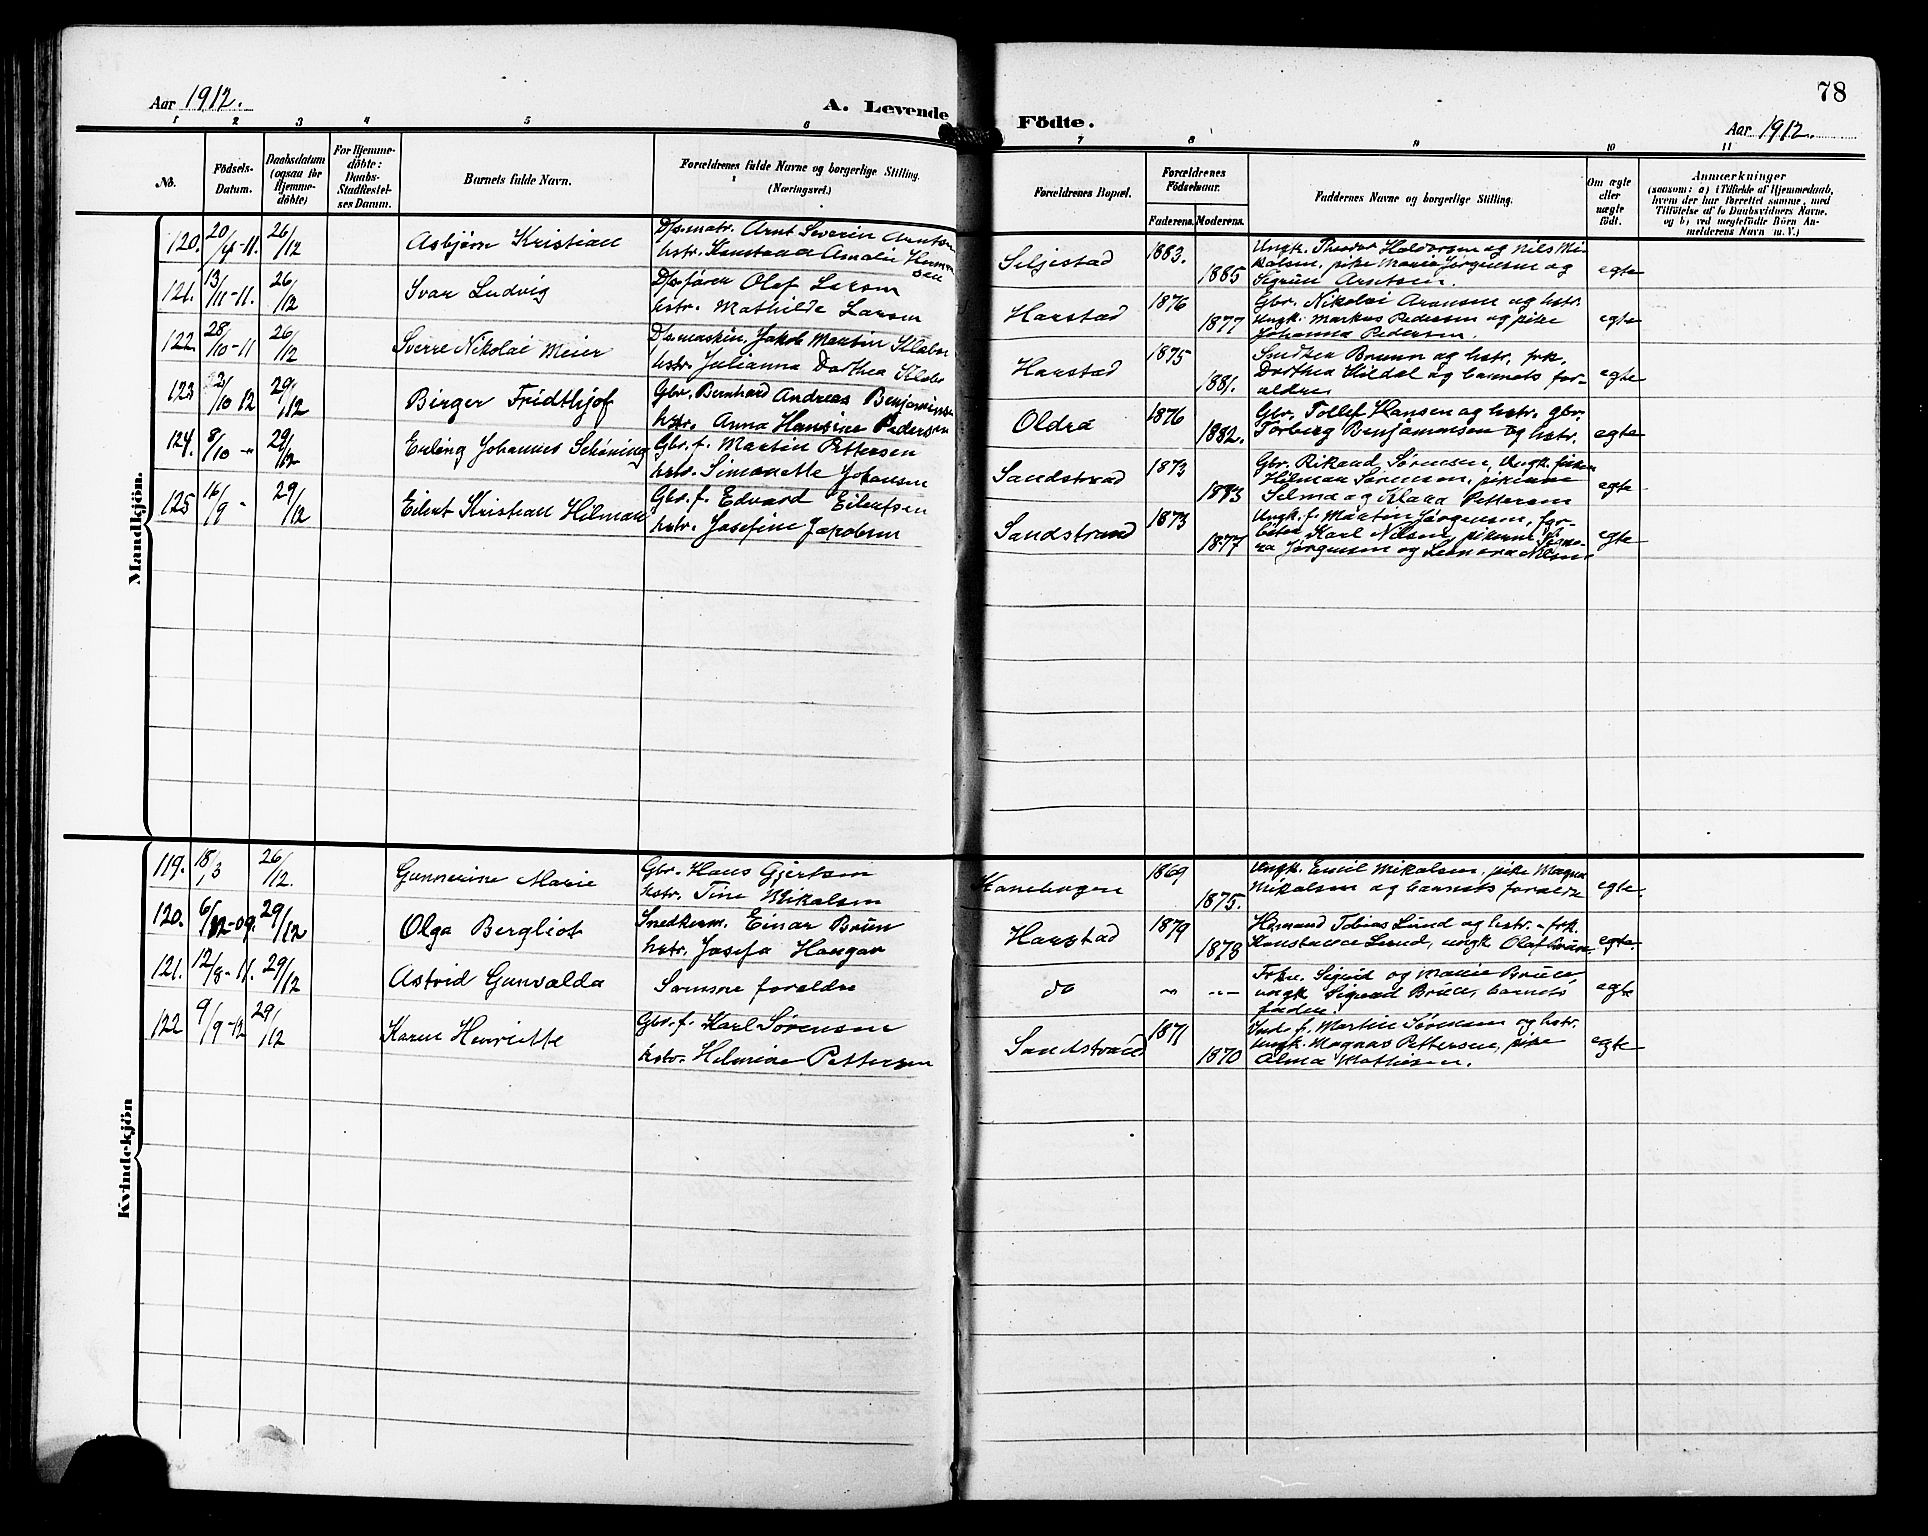 Aar 1912.
A. Levende
Födte.
78
Aar 1912.
1 2 3 4 5 6 7 8 9 10 11
No.
Födsels-
Datum.
Daabsdatum
(ogsaa for
Hjemme-
döbte)
For Hjemme-
döbte:
Daabs-
Stadfæstel-
ses Datum.
Barnets fulde Navn.
Forældrenes fulde Navne og borgerlige Stilling.
(Næringsvei.)
Forældrenes Bopæl.
Forældrenes
Födselsaar.
Faderens. Moderens.
Faddernes Navne og borgerlige Stilling.
Om ægte
eller
uægte
født.
Anmærkninger
(saasom: a) i Tilfælde af Hjemmedaab,
hvem der har forrettet samme, med
Tilföielse af to Daabsvidners Navne.
og b) ved uægtefödte Börn An-
melderens Navn m. V.)
Mandkjön.
120. 20/4-11. 26/12 Asbjørn Kristian
Ds.matr. Arnt Severin Arntsen
hstr. Konstanse Amalie Herman
sen
Seljestad 1883. 1885
Ungk. Theodor Haldorsen og Nils Mi-
kalsen, pike Marie Jørgensen og
Sigrun Arntsen.
egte
121. 13/11-11. 26/12 Ivar Ludvig
Ds.fører Olaf Larsen
hstr. Mathilde Larsen
Harstad 1876 1877
Gbr. Nikolai Aronsen og hstr.
Ungk. Markus Pedersen og pike
Johanna Pedersen.
egte
122. 28/10-11 26/12 Sverre Nikolai Meier
Ds.maskin. Jakob Martin Klæbo
hstr. Julianna Dorthea Klæbo
Harstad 1875 1881.
Brunn og hstr. frk.
Dorthea Hildal og barnets for-
ældre
egte
123 2/10 12 29/12 Birger Fridthjof
Gbr. Bernhard Andreas Benjaminsen
hstr. Anna Hansine Pedersen
Oldra 1876 1882.
Gbr. Tollef Hansen og hstr. gbr.
Torberg Benjaminsen og hstr.
egte
124. 8/10 - 29/12 Erling Johannes Schøning
Gbr. f. Martin Pettersen
hstr. Simonette Johansen
Sandstrand 1873 1873
Gbr. Rikard Sørensen, Ungk. fisker
Hilmar Sørensen, pikerne
Selma og Klara Pettersen
egte
125 16/9 - 29/12 Eilert Kristian Hilmar
Gbr. f. Edvard Eilertsen
hstr. Josefine Jakobsen
Sandstrand 1873 1877
Ungk. f. Martin Jørgensen, for-
Karl Nilsen, pikerne
Jørgensen og Leonora Nilsen.
egte
Kvindekjön
119. 18/3 26/12. Gunnerine Marie
Gbr. Hans Gjertsen
hstr. Tine Mikalsen
Kanebogen 1869 1875.
Ungk. Emil Mikalsen, pike Magna
Mikalsen og barnets foreldre
egte.
120. 6/12-09. 29/12 Olga Bergliot
Snedkerm. Einar Bruun
hstr. Josefa Haugar
Harstad 1879 1878
Tobias Lund og hstr. - frk.
Konstance Lund, ungk Olaf Bruun.
egte.
121. 12/8-11. 29/12 Astrid Gunvalda
Samme foreldre
do
Frkn. Sigrid og Marie
ungk Sigvard barnets
fader.
egte
122 9/9-12 29/12 Karen Henriette
Gbr. f. Karl Sørensen
hstr. Helmine Pettersen
Sandstrand 1871 1870
f. Martin Sørensen og hstr.
Ungk. Magnus Pettersen, pike
Alma Mathisen.
egte